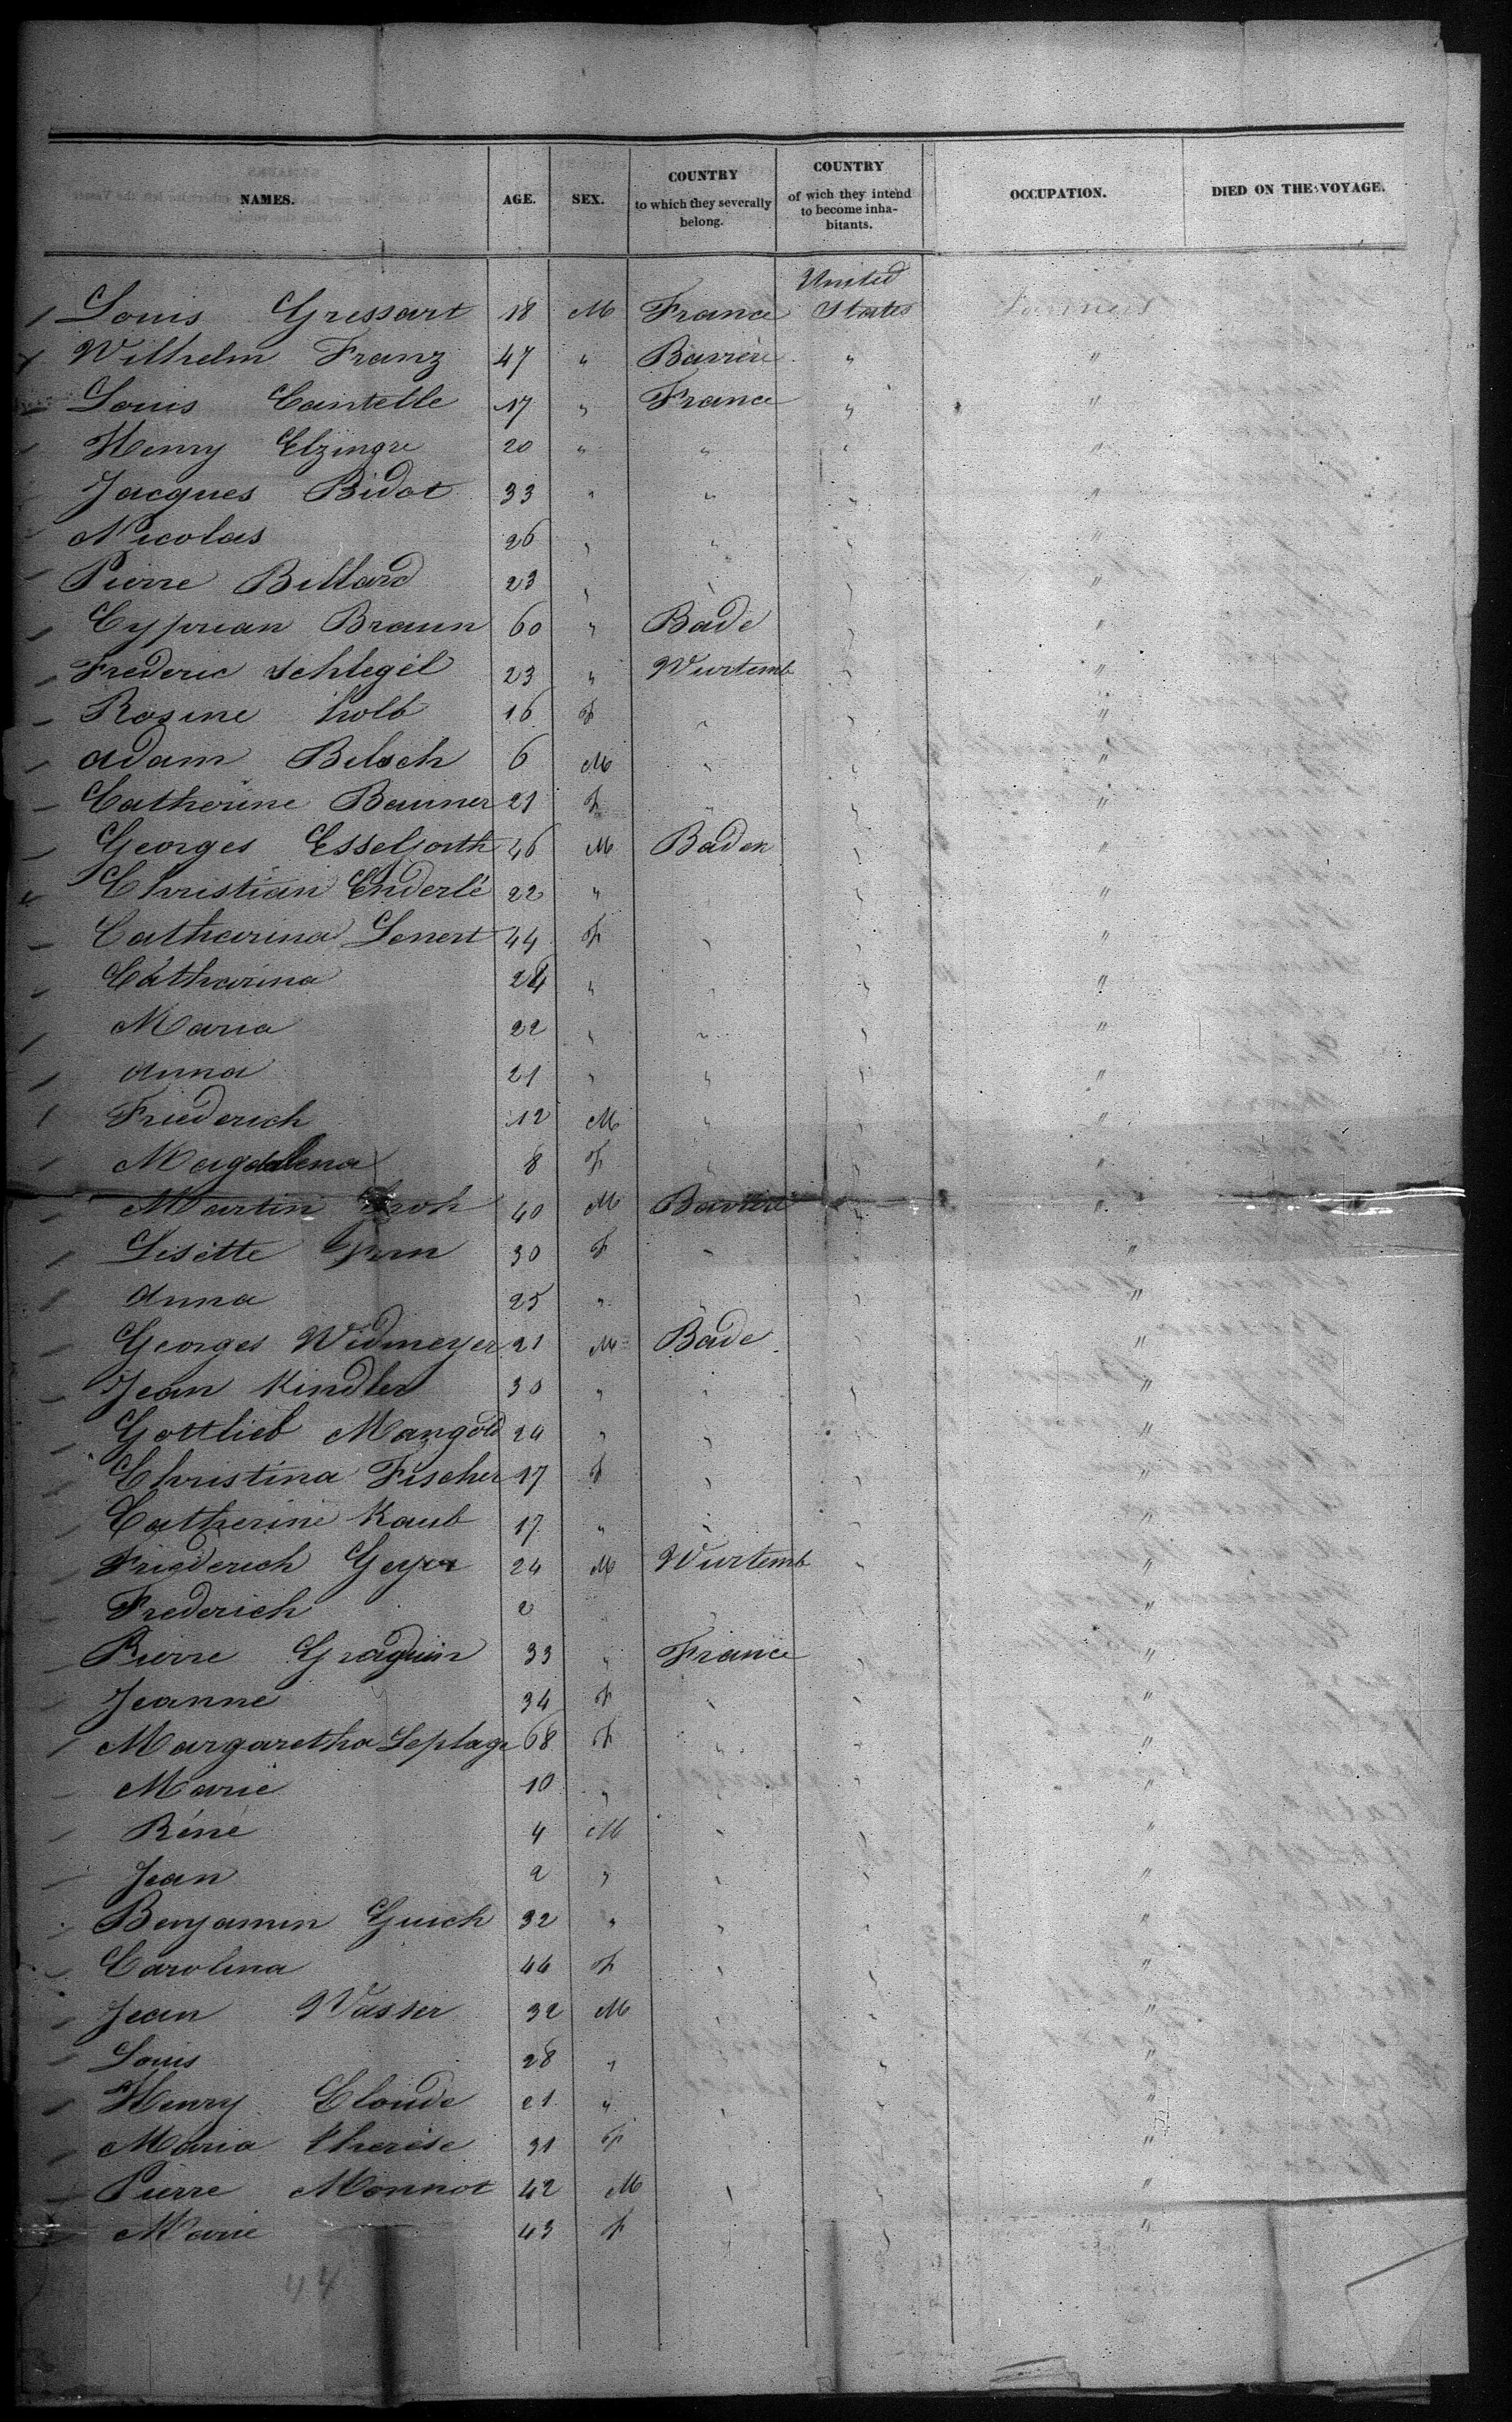 NAMES. AGE. SEX. COUNTRY to which they severally belong. COUNTRY of wich they intend to become inhabitants. OCCUPATION. DIED ON THE VOYAGE.
United
Louis Gressart 18 M France States Farmers
Wilhelm Franz 47 " Bavière " "
Louis Cantelle 17 " France " "
Henry Elzingre 20 " " " "
Jacques Bidot 33 " " " "
Nicolas 26 " " " "
Pierre Billard 23 " " " "
Cyprian Braun 60 " Bade " "
Frederic Schlegel 23 " Wurtemb " "
Rosine Kolb 16 F " " "
Adam Belsch 6 M " " "
Catherine Bauner 21 F " " "
Georges 46 M Baden " "
Christian Enderlé 22 " " "
Catharina Lenert 44 F " " "
Catharina 24 " " " "
Maria 22 " " " "
Anna 21 " " " "
Friederich 12 M " " "
Magdalena 8 F " " "
Martin Groh 40 M Bavière " "
Lisette 30 F " " "
Anna 25 " " " "
Georges Widmeyer 21 M Bade " "
Jean Kindler 30 " " " "
Gottlieb Mangold 24 " " " "
Christina Fischer 17 F " " "
Catherine Kaub 17 " " " "
Friederich Geyer 24 M Wurtemb " "
Frederich 2 " " "
Pierre Graguin 33 " France " "
Jeanne 34 F " " "
Margaretha Leplage 68 F " " "
Marie 10 " " "
Réné 4 M " " "
Jean 2 " " " "
Benjamin Guich 32 " " " "
Carolina 44 F " " "
Jean Wasser 32 M " " "
Louis 28 " " "
Henry Cloude 21 " " " "
Maria Therèse 31 F " " "
Pierre Monnot 42 M " " "
Marie 43 F " " "
44